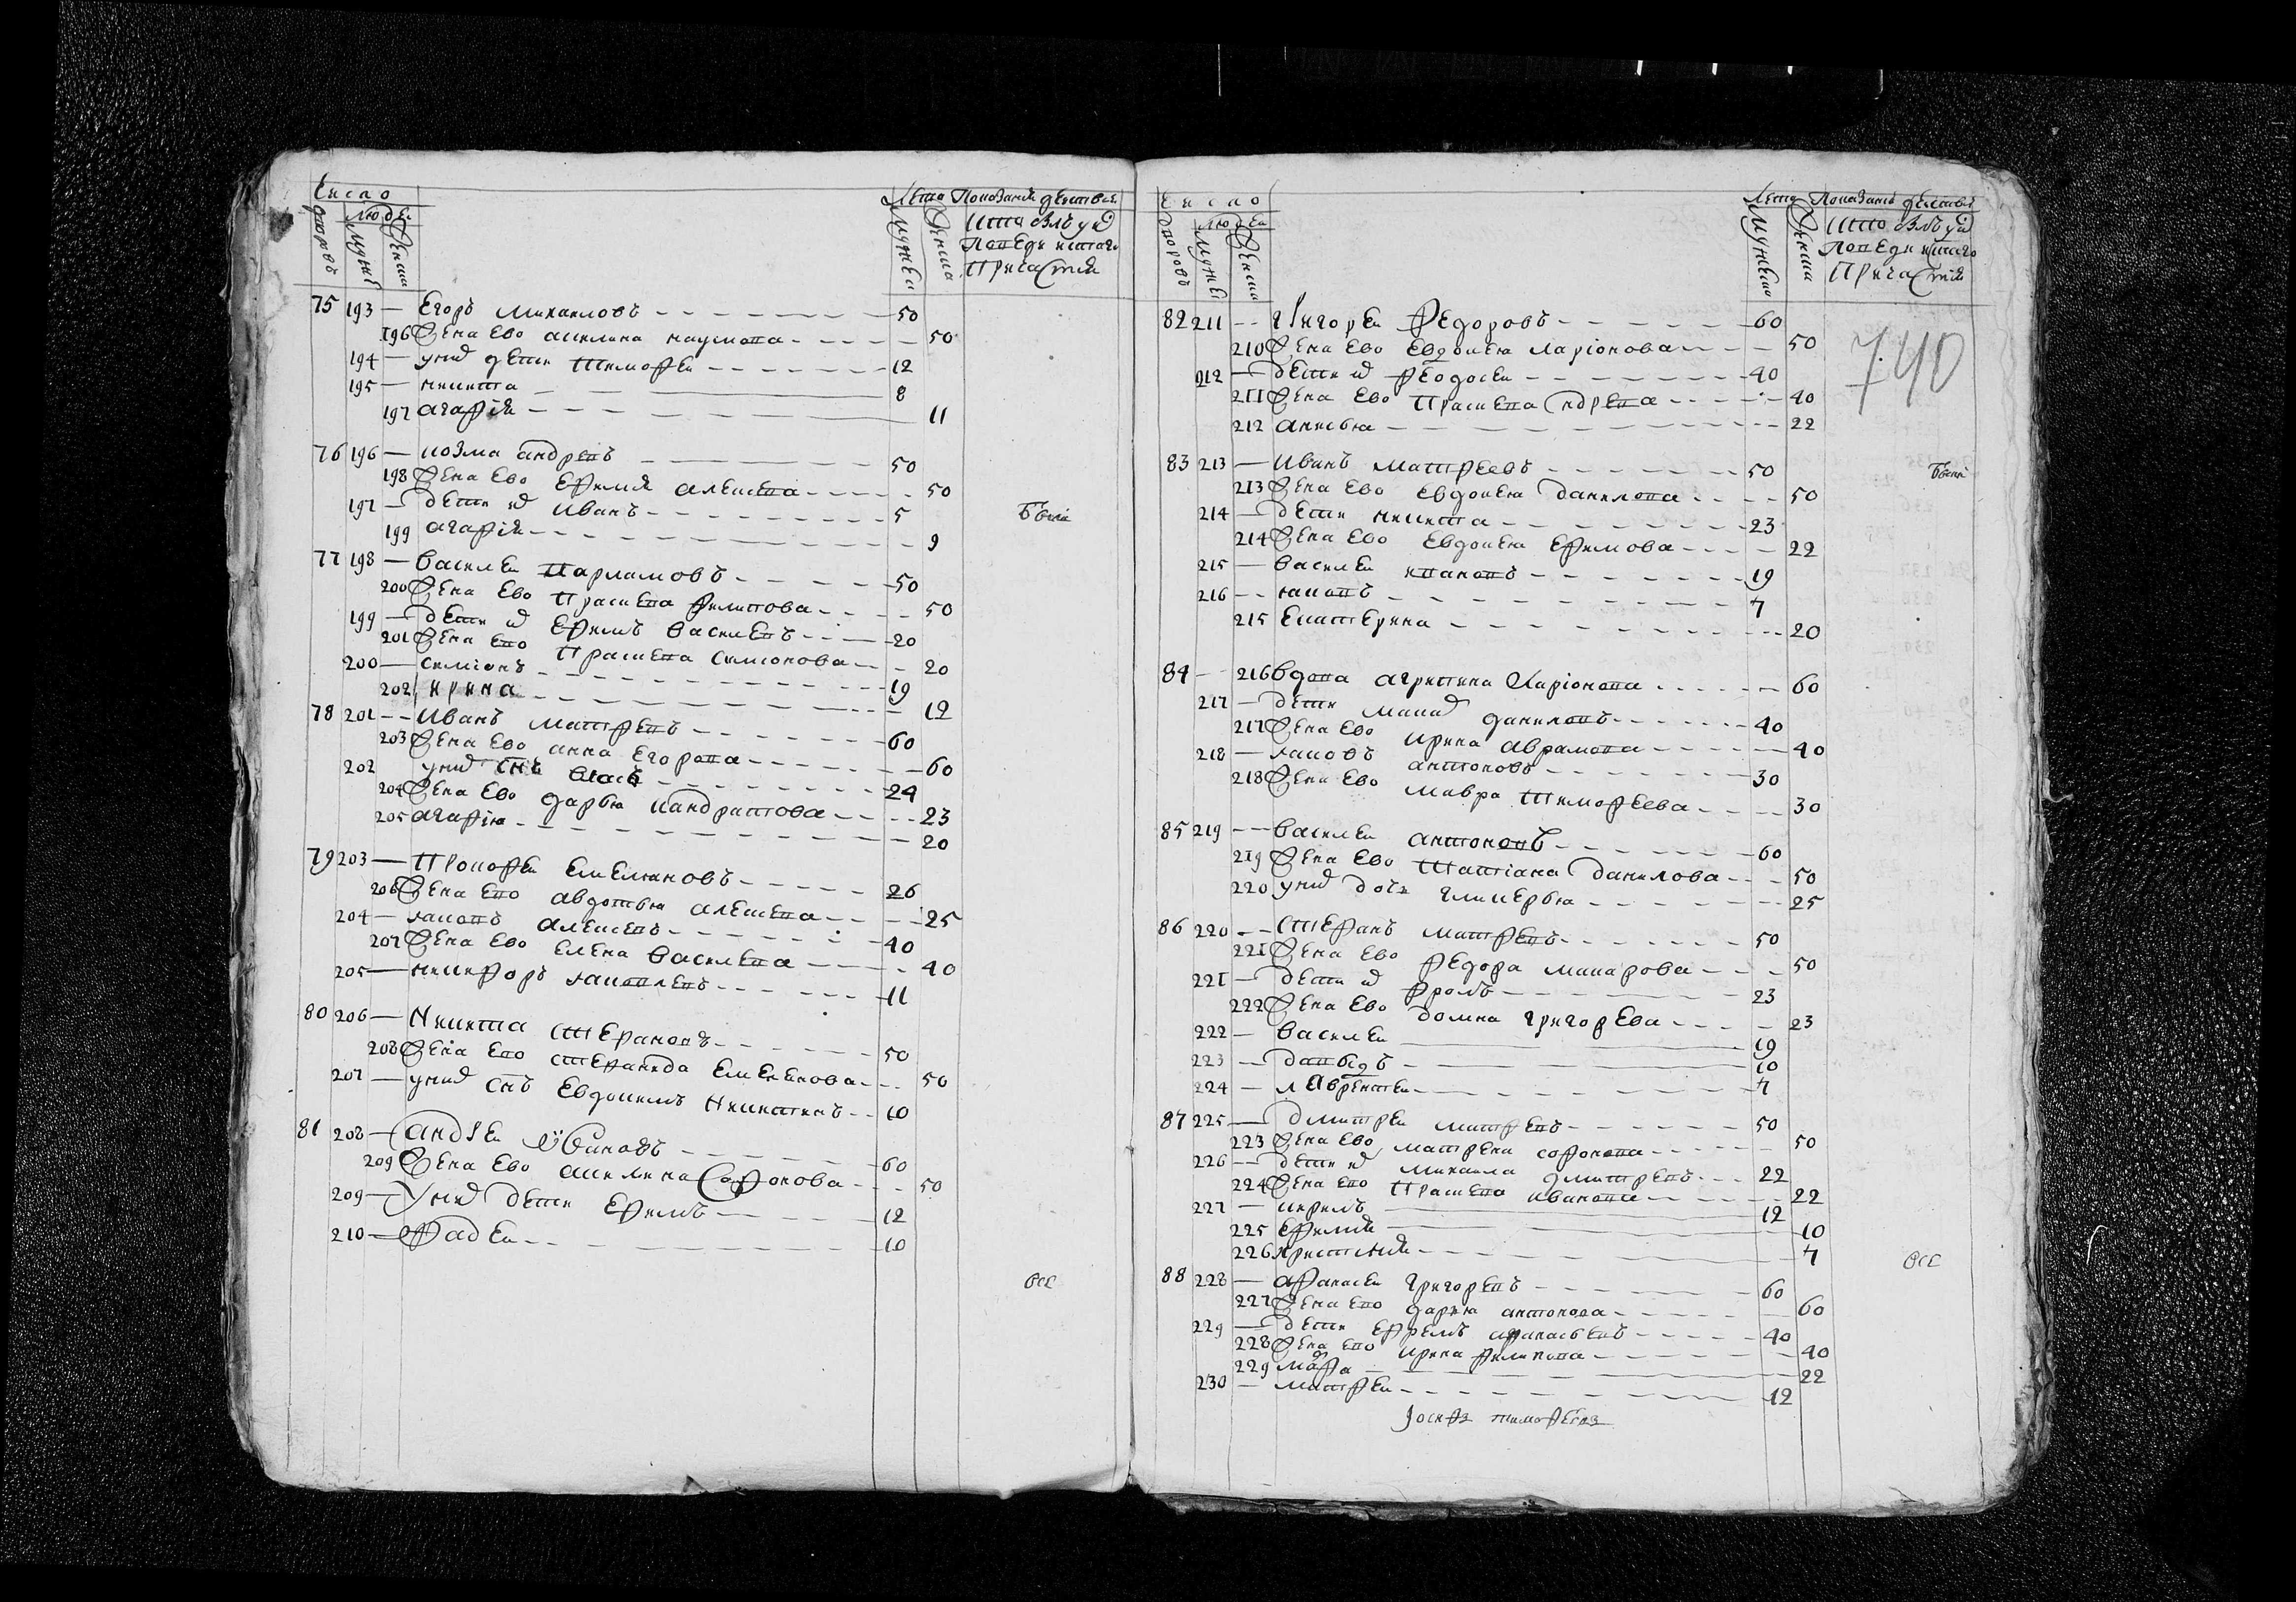 Число
Лета Показание действъ
дворовъ
людеи
мужеска
женска
мужеска
женска
кто былъ у исповеди и святаго
причастия
75 193 — Егоръ Михаиловъ 50
196 Жена Ево акилина наумова 50
194 — у них дети тимофеи 12
195 — никита 8
197 агафия 11
76 196 — козма андревъ 50
198 Жена Ево Ефимия алексева 50
197 — дети их Иванъ 5
были
199 агафия 9
77 198 — василеи парламовъ 50
200 Жена Ево прасковя филипова 50
199 — дети их Ефимъ василевъ 20
201 Жена Ево прасковя симионова 20
200 — симионъ 19
202 ирина 12
78 201 — Иванъ матфевъ 60
203 Жена Ево анна Егорова 60
202 у них снъ власъ 24
204 Жена Ево дарья кандратова 23
205 агафия 20
79 203 — прокофеи Емельяновъ 26
206 Жена Ево авдотья алексева 25
204 — яковъ алексевъ 40
207 Жена Ево елена василева 40
205 — никифоръ яковлевъ 11
80 206 — Никита стефановъ 50
208 Жена Ево стефанида Емеленова 50
207 — у них снъ Евдокимъ Никитинъ 10
81 208 — андреи Ивановъ 60
209 Жена Ево акилина Софонова 50
209 — у них дети Ефимъ 12
210 — Фадеи 10
все
Число
Лета Показание действъ
дворовъ
людеи
мужеска
женска
мужеска
женска
кто былъ у исповеди и святаго
причастия
740
82 211 — Григореи Федоровъ 60
210 Жена Ево Евдокея лариюнова 50
212 — дети их феодосеи 40
211 Жена Ево прасковя андрева 40
212 анисья 22
83 213 — Иванъ матфеевъ 50
были
213 Жена Ево Евдокея данилова 50
214 — дети никита 23
214 Жена Ево Евдокея Ефимова 22
215 — василеи ивановъ 19
216 — яковъ 7
215 Екатерина 20
84 — 216 вдова агрипина Ларионова 60
217 — дети макар даниловъ 40
217 Жена Ево ирина аврамова 40
218 — яковъ антоновъ 30
218 Жена Ево мавра тимофеева 30
85 219 — василеи антоновъ 60
219 Жена Ево татиана данилова 50
220 у них дочь гликерья 25
86 220 — стефанъ матфевъ 50
221 Жена Ево федора макарова 50
221 — дети их фролъ 23
222 Жена Ево домна григорева 23
222 — василеи 19
223 — давыдъ 10
224 — лаврентеи 7
87 225 — дмитреи матфевъ 50
223 Жена Ево матрена софонова 50
226 — дети их михаила дмитревъ 22
224 Жена Ево прасковя иванова 22
227 — кирилъ 12
225 Ефимия 10
226 христиния 7
все
88 228 — афанасеи григоревъ 60
227 Жена Ево дарья антонова 60
229 — дети ефремъ афанасьевъ 40
228 Жена Ево ирина филипова 40
229 марфа 22
230 — матфеи 12
Иосифъ тимофеевъ